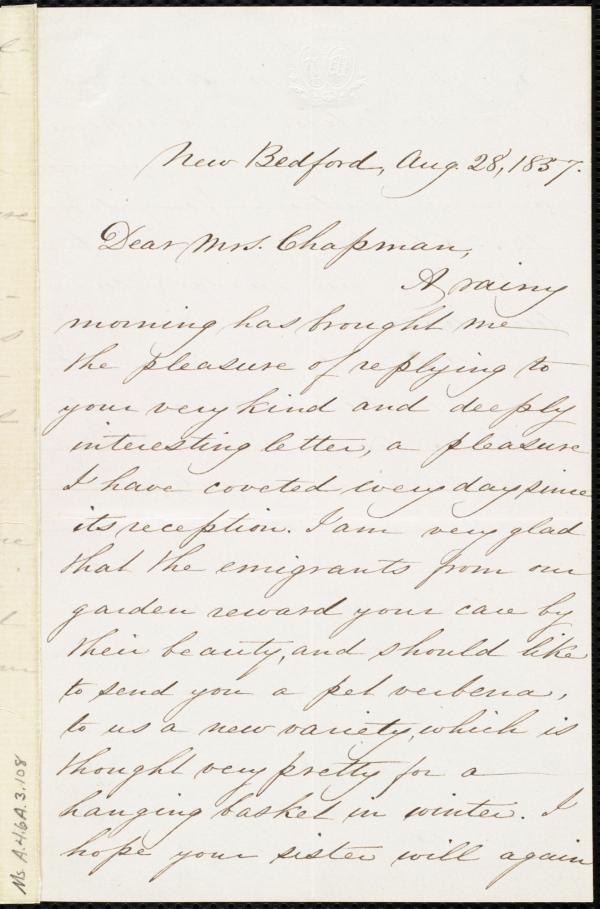 New Bedford, Aug. 28, 1857.
Dear Mrs. Chapman,
A rainy
morning has brought me
the pleasure of replying to
your very kind and deeply
interesting letter, a pleasure
I have coveted every day since
its reception. I am very glad
that the emigrants from our
garden reward your care by
their beauty, and should like
to send you a pet verbena,
to us a new variety, which is
thought very pretty for a
hanging basket in winter. I
hope your sister will again
Ms. A.4.6A.3.108